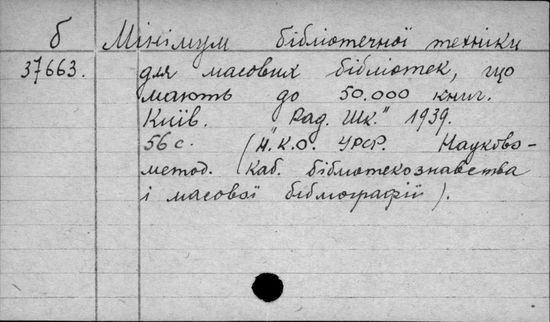 б Мінімум бібліотечної техніки
37663. для масових бібліотек, що
мають до 50.000 книг.
Київ. "Рад. Шк." 1939.
56 с. (Н.К.О. УРСР. Науково-
метод. каб. бібліотекознавства
і масової бібліографії).